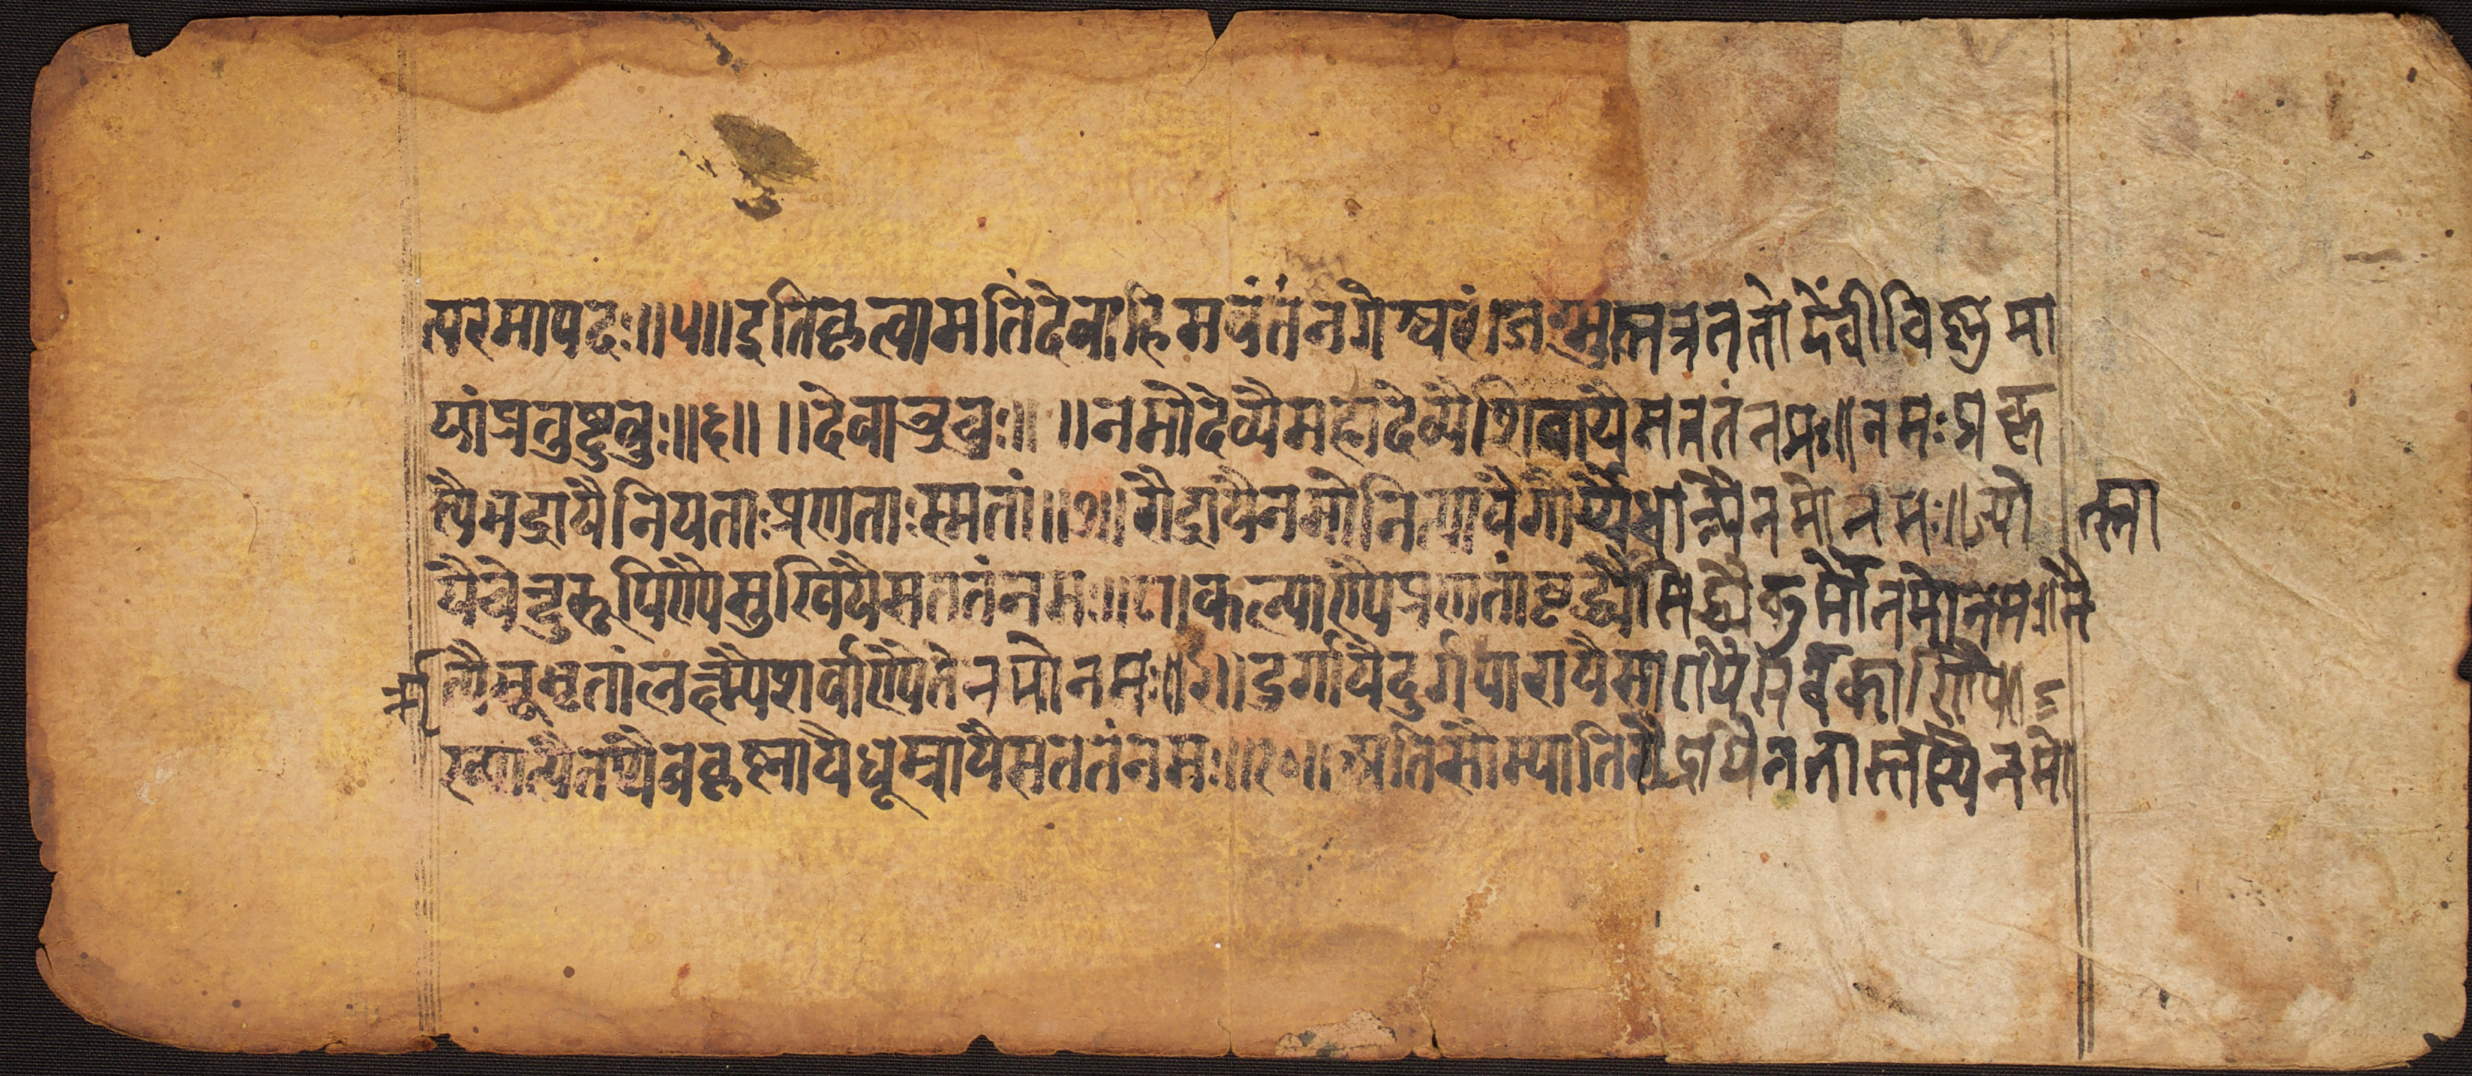 त्परमापदः॥५॥इतिकृत्वामतिंदेवाहिमवंतंनगेश्वरं।जग्मुस्तत्रततोदेवींविष्णुमा
यांप्रतुष्टुवुः॥६॥॥देवाऊचुः॥॥नमोदेव्यैमहादेव्यैशिवायैसततंनमः॥नमःप्रकृ
त्यैभद्रायैनियताःप्रणताःस्मतां॥७॥रौद्रायैनमोनित्यायैगौर्य्यैधात्र्यैनमोनमः॥ज्योत्स्ना
यैचेन्दुरूपिण्यैसुखियैसततंनमः॥८॥कल्याण्यैप्रणतांवृद्ध्यैसिद्ध्यैकुर्मोनमोनमः॥नै
र्ऋत्यैभूभृतांलक्ष्म्यैशर्वाण्यैतेनमोनमः॥९॥दुर्गायैदुर्गपारायैसारायैसर्वकारिण्यै॥
ख्यात्यैतथैवकृष्णायैधूम्रायैसततंनमः॥१०॥अतिसौम्यातिरौद्रायैनतास्तस्यैनमो